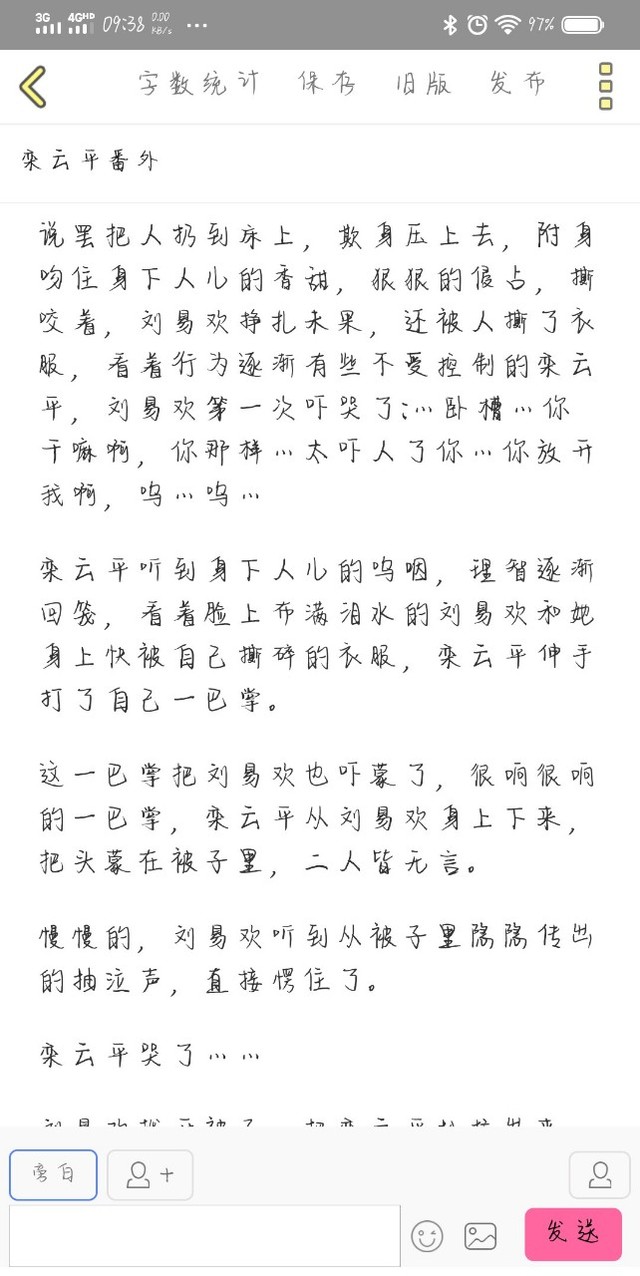 3G 4GHD 09:38 0.00 KB/s ... 97%
字数统计 保存 旧版 发布
栾云平番外
说罢把人扔到床上，欺身压上去，附身
吻住身下人儿的香甜，狠狠的侵占，撕
咬着，刘易欢挣扎未果，还被人撕了衣
服，看着行为逐渐有些不受控制的栾云
平，刘易欢第一次吓哭了:…卧槽…你
干嘛啊，你那样…太吓人了你…你放开
我啊，呜…呜…
栾云平听到身下人儿的呜咽，理智逐渐
回笼，看着脸上布满泪水的刘易欢和她
身上快被自己撕碎的衣服，栾云平伸手
打了自己一巴掌。
这一巴掌把刘易欢也吓蒙了，很响很响
的一巴掌，栾云平从刘易欢身上下来，
把头蒙在被子里，二人皆无言。
慢慢的，刘易欢听到从被子里隐隐传出
的抽泣声，直接愣住了。
栾云平哭了……
旁白
发送